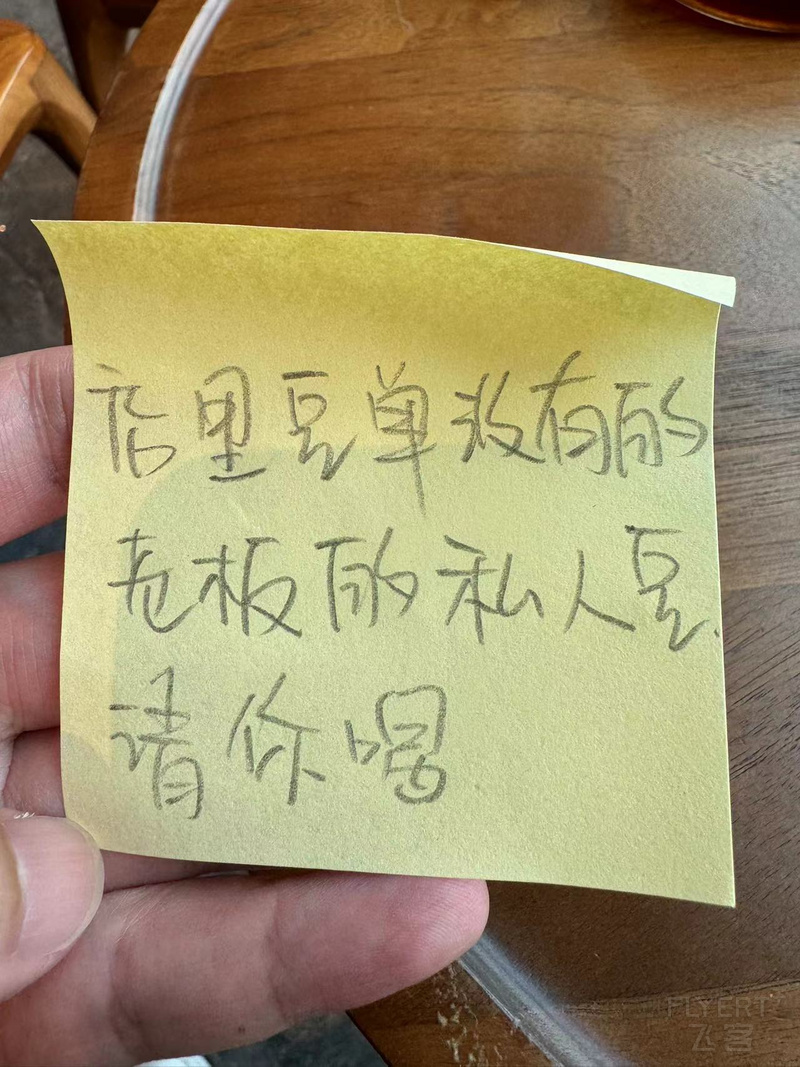 店里豆单没有的
老板的私人豆.
请你喝
FLYERT
飞客